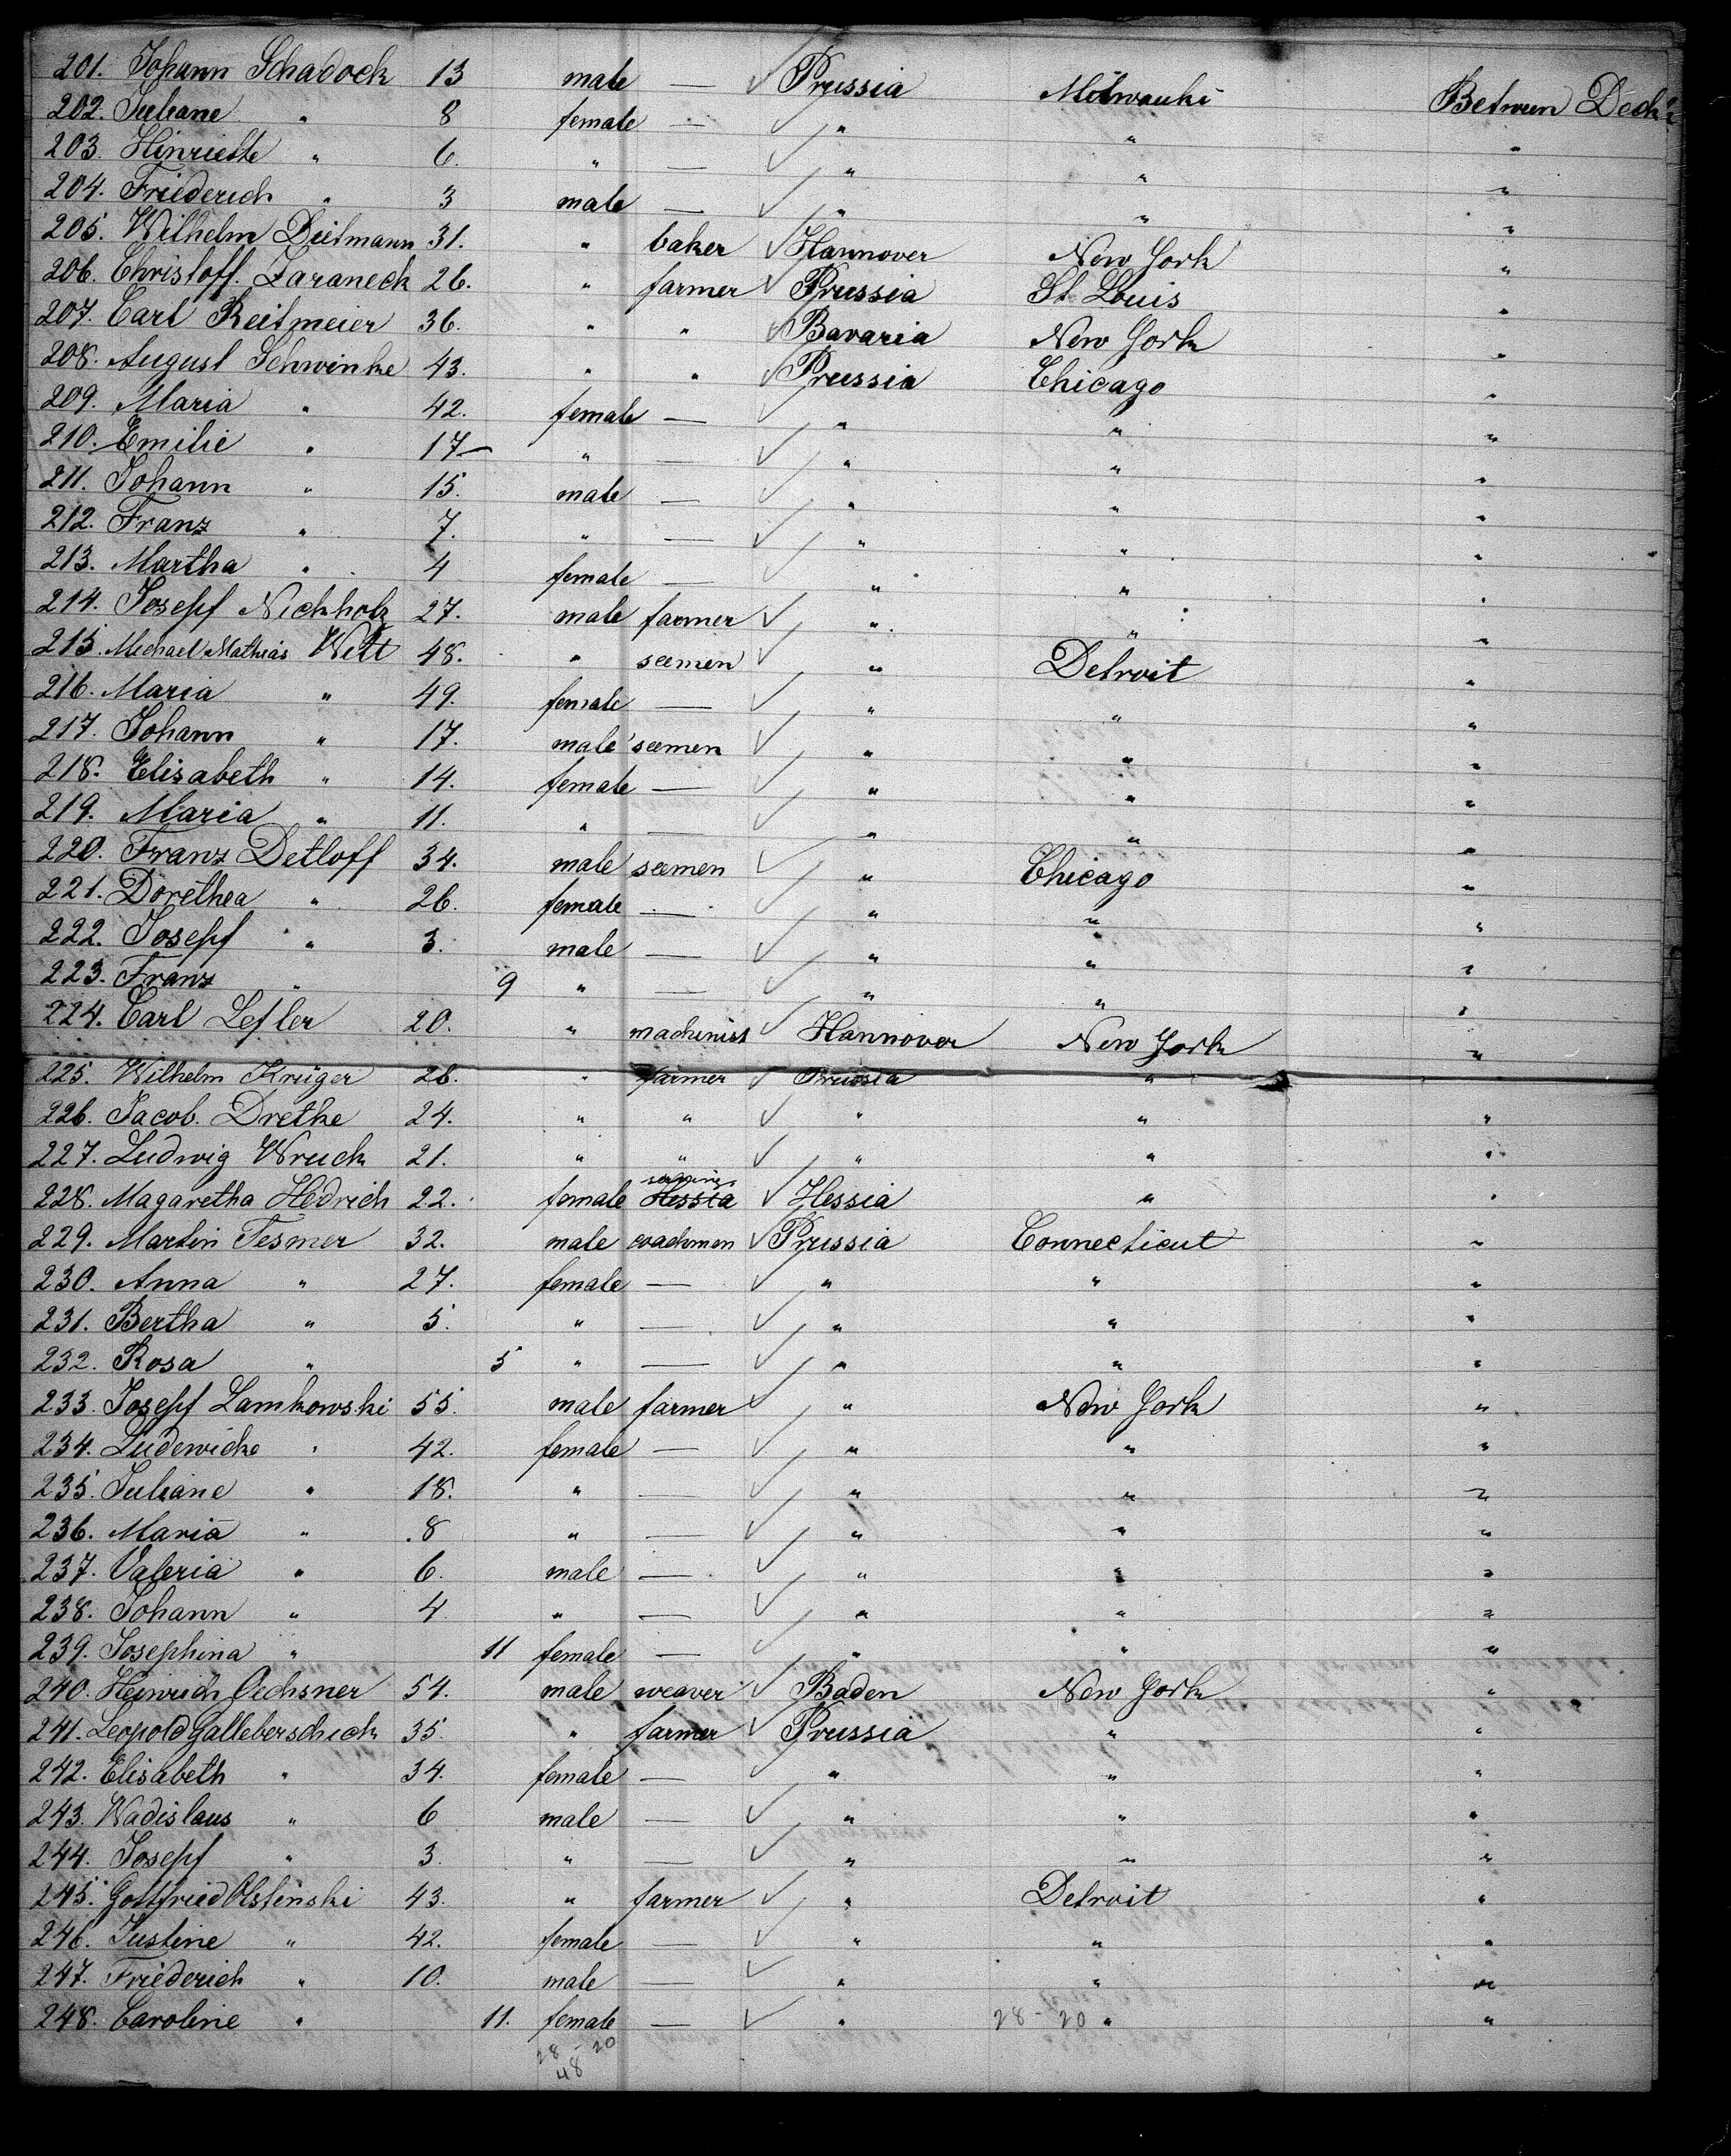 201. Johann Schadock 13 male — ✓ Prussia Milwauki Between Deck
202. Juliane " 8 female — ✓ " " "
203. Hinriette " 6. " — ✓ " " "
204. Friederich " 3 male — ✓ " " "
205. Wilhelm Dietmann 31. " baker ✓ Hannover New York "
206. Christoff. Zaraneck 26. " farmer ✓ Prussia St Louis "
207. Carl Reitmeier 36. " " ✓ Bavaria New York "
208. August Schwinke 43. " " ✓ Prussia Chicago "
209. Maria " 42. female — ✓ " " "
210. Emilie " 17 " — ✓ " " "
211. Johann " 15. male — ✓ " " "
212. Franz " 7. " — ✓ " " "
213. Martha " 4 female — ✓ " " "
214. Josepf Nickholz 27. male farmer ✓ " " "
215. Michael Mathias Witt 48. " seemen ✓ " Detroit "
216. Maria " 49. female — ✓ " " "
217. Johann " 17. male seemen ✓ " " "
218. Elisabeth " 14. female — ✓ " " "
219. Maria " 11. " — ✓ " " "
220. Franz Detloff 34. male seemen ✓ " Chicago "
221. Dorethea " 26. female — ✓ " " "
222. Josepf " 3. male — ✓ " " "
223. Franz " 9 " — ✓ " " "
224. Carl Lefler 20. " machinist ✓ Hannover New York "
225. Wilhelm Krüger 26. " farmer ✓ Prussia " "
226. Jacob. Dretke 24. " " ✓ " " "
227. Ludwig Wruck 21. " " ✓ " " "
228. Magaretha Hedrich 22. female Hessia ✓ Hessia " "
229. Martin Tesmer 32. male coachmen ✓ Prussia Connecticut "
230. Anna " 27. female — ✓ " " "
231. Bertha " 5. " — ✓ " " "
232. Rosa " 5 " — ✓ " " "
233. Josepf Lamkowski 55. male farmer ✓ " New York "
234. Ludewicke " 42. female — ✓ " " "
235. Juliane " 18. " — ✓ " " "
236. Maria " 8 " — ✓ " " "
237. Valeria " 6. male — ✓ " " "
238. Johann " 4 " — ✓ " " "
239. Josephina " 11 female — ✓ " " "
240. Heinrich Oechsner 54. male weaver ✓ Baden New York "
241. Leopold Galleberschick 35. " farmer ✓ Prussia " "
242. Elisabeth " 34. female — ✓ " " "
243. Wadislaus " 6 male — ✓ " " "
244. Josepf " 3. " — ✓ " " "
245. Gottfried Olstinski 43. " farmer ✓ " Detroit "
246. Justine " 42. female — ✓ " " "
247. Friederich " 10. male — ✓ " " "
248. Caroline " 11. female — ✓ " 28 - 20 " "
28 - 20
48